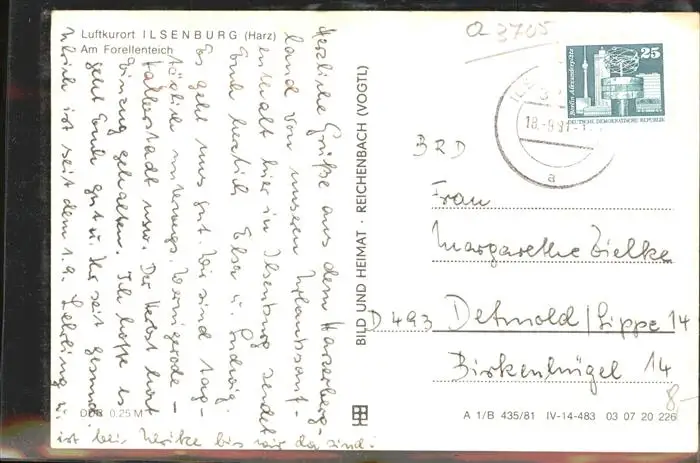 Luftkurort ILSENBURG (Harz)
Am Forellenteich
Herzliche Grüße aus dem Harzerberg-
land von unserem Urlaubsauf-
enthalt hier in Ilsenburg sendet
Euch herzlich Elsa u. Ludwig.
Es geht uns gut. Wir sind tag-
täglich unterwegs. Wernigerode -
Halberstadt usw. Der Herbst hat
Einzug gehalten. Ich hoffe es
geht Euch gut u. Ihr seit gesund.
Ulrich ist seit dem 1.9. Lehrling u.
ist bei bis wir da sind.
DDR 0.25 M
BILD UND HEIMAT · REICHENBACH (VOGTL)
a 3705
Berlin, Alexanderplatz
25
DEUTSCHE DEMOKRATISCHE REPUBLIK
18.-9.81.-
a
BRD
Frau
Margarethe Zielke
D 493 Detmold/Lippe 14
Birkenhügel 14
8,-
A 1/B 435/81 IV-14-483 03 07 20 226